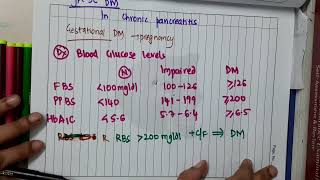 DM
In chronic pancreatitis
Gestational DM → pregnancy
Dx Blood Glucose levels
N Impaired DM
FBS <100mg/dl 100-126 ≥126
PPBS <140 141-199 ≥200
HbA1C <5.6 5.7-6.4 ≥6.5
R RBS >200mg/dl + C/F ⇒ DM